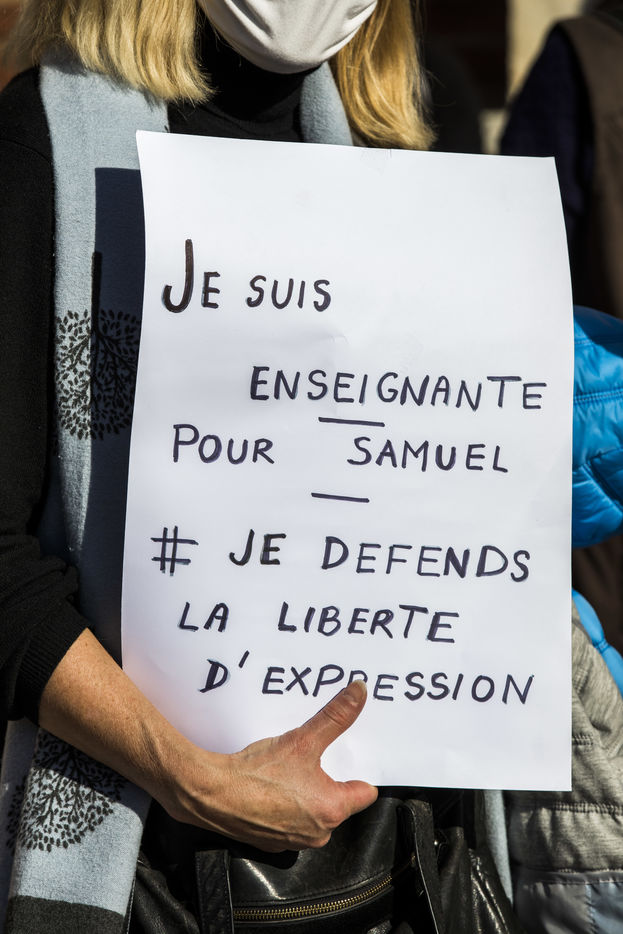 JE SUIS
ENSEIGNANTE
POUR SAMUEL
# JE DEFENDS
LA LIBERTE
D'EXPRESSION